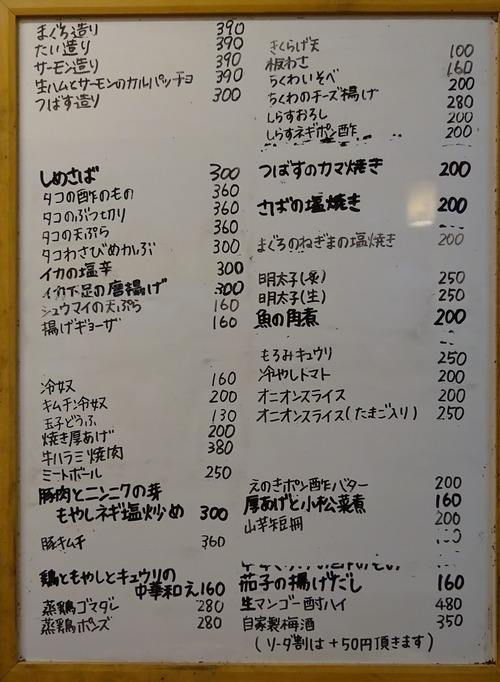 まぐろ造り 390
たい造り 390
サーモン造り 390
生ハムとサーモンのカルパッチョ 390
つばす造り 300
しめさば 300
タコの酢のもの 360
タコのぶつ切り 360
タコの天ぷら 360
タコわさびめかぶ 300
イカの塩辛 300
イカ下足の唐揚げ 300
シュウマイの天ぷら 160
揚げギョーザ 160
冷奴 160
キムチン冷奴 200
玉子どうふ 130
焼き厚あげ 200
牛ハラミ焼肉 380
ミートボール 250
豚肉とニンニクの芽
もやしネギ塩炒め 300
豚キムチ 360
鶏ともやしとキュウリの
中華和え 160
蒸鶏ゴマダレ 280
蒸鶏ポンズ 280
きくらげ天 100
板わさ 160
ちくわいそべ 200
ちくわのチーズ揚げ 280
しらすおろし 200
しらすネギポン酢 200
つばすのカマ焼き 200
さばの塩焼き 200
まぐろのねぎまの塩焼き 200
明太子(炙) 250
明太子(生) 250
魚の角煮 200
もろみキュウリ 250
冷やしトマト 200
オニオンスライス 200
オニオンスライス(たまご入り) 250
えのきポン酢バター 200
厚あげと小松菜煮 160
山芋短冊 200
茄子の揚げだし 160
生マンゴー酎ハイ 480
自家製梅酒 350
(ソーダ割は+50円頂きます)